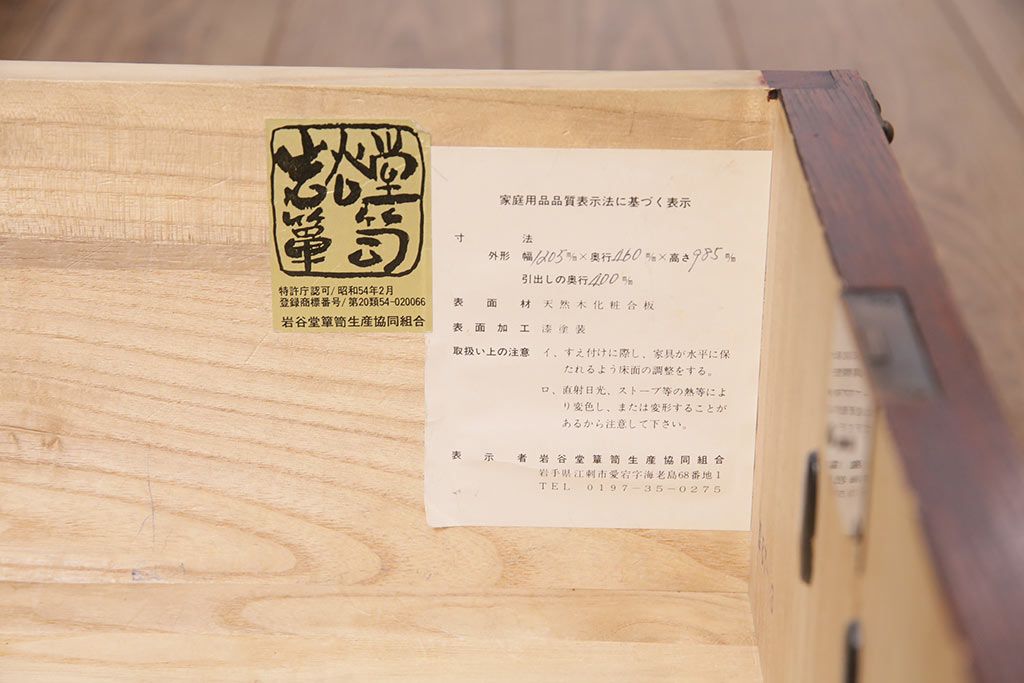 岩谷堂
箪笥
特許庁認可/昭和54年2月
登録商標番号/第20類54-020066
岩谷堂簞笥生産協同組合
家庭用品品質表示法に基づく表示
寸法
外形 幅1205㎜×奥行460㎜×高さ985㎜
引出しの奥行400㎜
表面材 天然木化粧合板
表面加工 漆塗装
取扱い上の注意 イ、すえ付けに際し、家具が水平に保
たれるよう床面の調整をする。
ロ、直射日光、ストーブ等の熱等によ
り変色し、または変形することが
あるから注意して下さい。
表示者 岩谷堂簞笥生産協同組合
岩手県江刺市愛宕字海老島68番地1
TEL 0197-35-0275